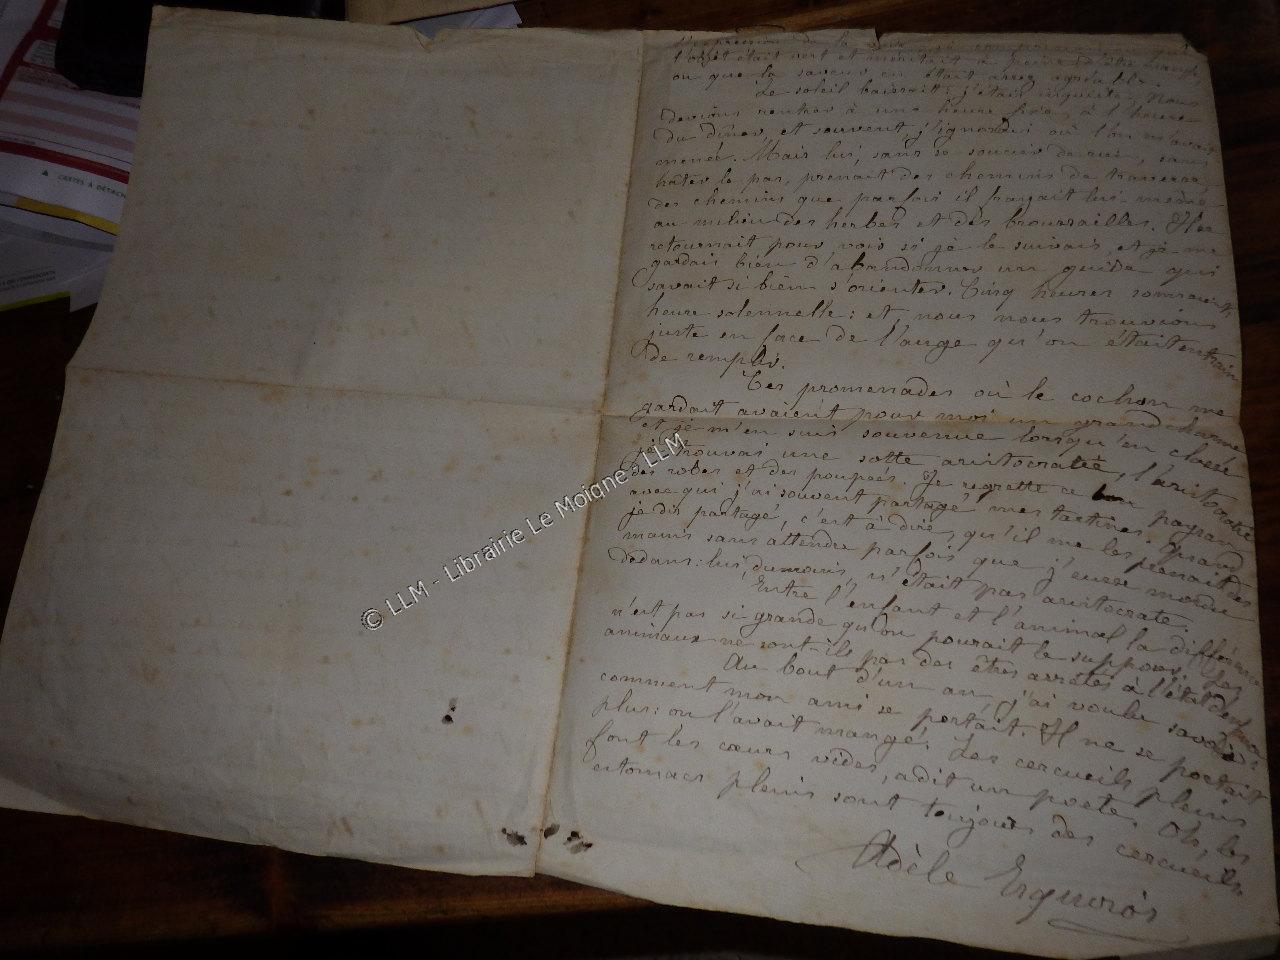 l'objet était vert et méritait à peine d'être
ou que la saveur en était assez agréable.
Le soleil baissait; j'étais inquiète. Nous
devions rentrer à une heure fixe, à l'heure
du dîner, et souvent, j'ignorais où l'on m'avait
menée. Mais lui, sans se soucier de rien, sans
hâter le pas, prenait des chemins de traverse,
des chemins que parfois il frayait lui-même
au milieu des herbes et des broussailles. Il se
retournait pour voir si je le suivais, et je me
gardais bien d'abandonner un guide qui
savait si bien s'orienter. Cinq heures sonnaient,
heure solennelle: et nous nous trouvions
juste en face de l'auge qu'on était en train
de remplir.
Ces promenades où le cochon me
gardait avaient pour moi un grand charme
et je m'en suis souvenue lorsqu'en classe
je trouvai une sotte aristocratie, l'aristocratie
des robes et des poupées. Je regrette ce bon paysan
avec qui j'ai souvent partagé mes tartines. Quand
je dis partagé, c'est à dire qu'il me les prenait des
mains sans attendre parfois que j'eusse mordu
dedans: lui, du moins, n'était pas aristocrate.
Entre l'enfant et l'animal la différence
n'est pas si grande qu'on pourait le supposer. Les
animaux ne sont-ils pas des êtres arrêtés à l'état
Au bout d'un an, j'ai voulu savoir
comment mon ami se portait. Il ne se portait
plus: on l'avait mangé. Les cercueils pleins
font les cœurs vides, a dit un poète. Oh, les
estomacs pleins sont toujours des cercueils.
Adèle Esquiros
© LLM - Librairie Le Moigne - LLM
CARTES À DÉTACH